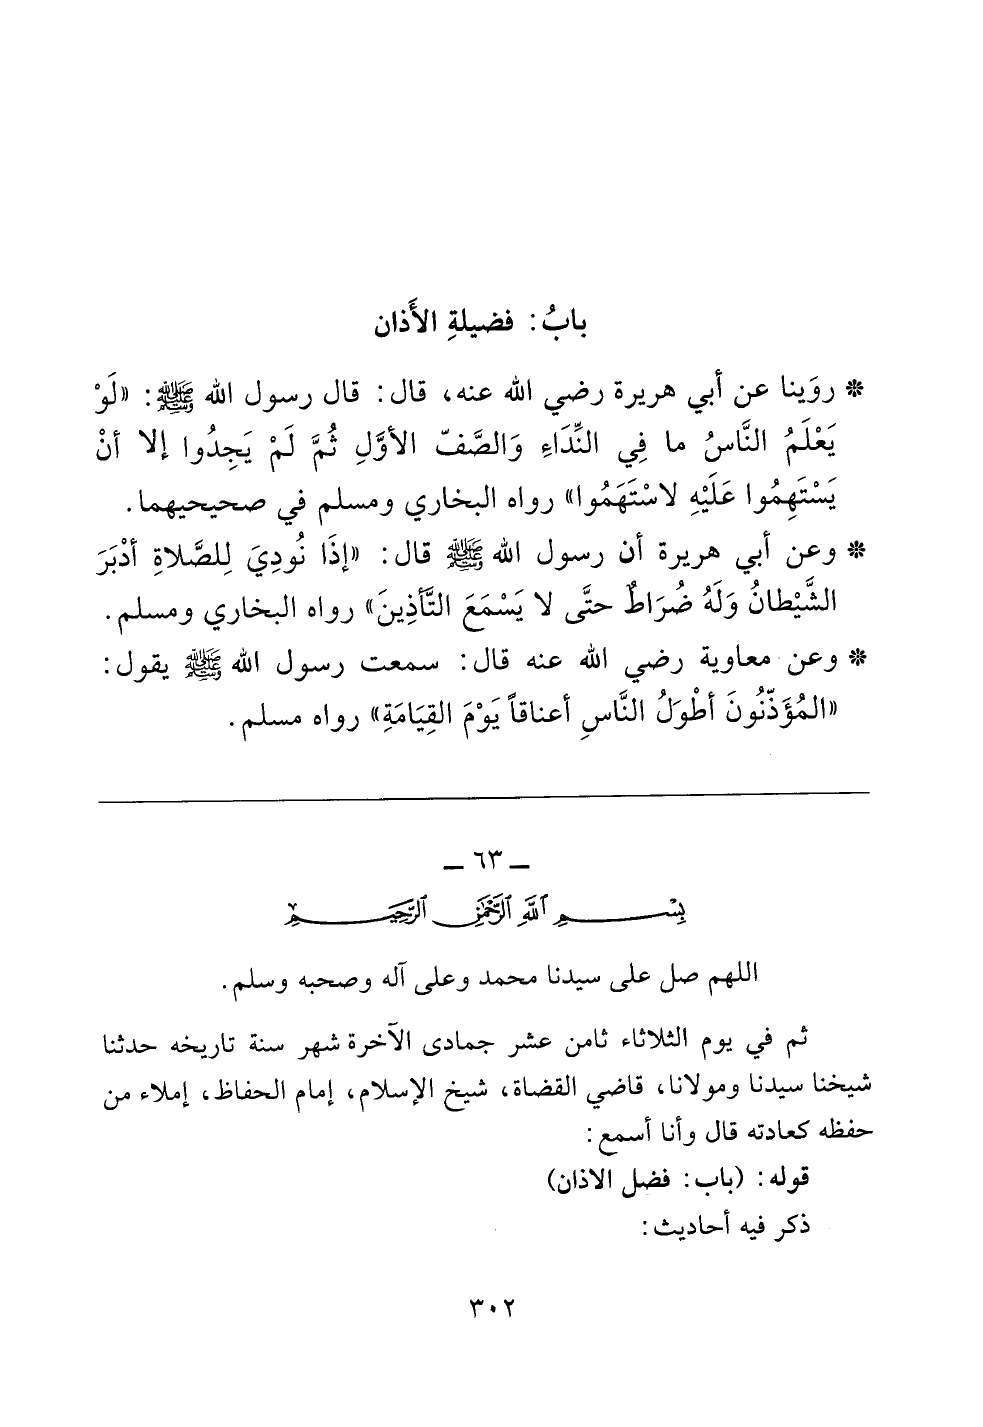 بابُ: فضيلةِ الأَذان
❋ روَينا عن أبي هريرة رضي الله عنه، قال: قال رسول الله ﷺ: «لَوْ
يَعْلَمُ النَّاسُ ما فِي النِّدَاءِ وَالصَّفّ الأوَّلِ ثُمَّ لَمْ يَجِدُوا إلا أنْ
يَسْتَهِمُوا عَلَيْهِ لاسْتَهَمُوا» رواه البخاري ومسلم في صحيحيهما.
❋ وعن أبي هريرة أن رسول الله ﷺ قال: «إذَا نُودِيَ لِلصَّلاةِ أدْبَرَ
الشَّيْطانُ وَلَهُ ضُرَاطٌ حتَّى لا يَسْمَعَ التَّأذِينَ» رواه البخاري ومسلم.
❋ وعن معاوية رضي الله عنه قال: سمعت رسول الله ﷺ يقول:
«المُؤَذّنُونَ أطْوَلُ النَّاسِ أعناقاً يَوْمَ القِيَامَةِ» رواه مسلم.
ـ ٦٣ ـ
بِسْمِ اللَّهِ الرَّحْمَٰنِ الرَّحِيمِ
اللهم صل على سيدنا محمد وعلى آله وصحبه وسلم.
ثم في يوم الثلاثاء ثامن عشر جمادى الآخرة شهر سنة تاريخه حدثنا
شيخنا سيدنا ومولانا، قاضي القضاة، شيخ الإسلام، إمام الحفاظ، إملاء من
حفظه كعادته قال وأنا أسمع:
قوله: (باب: فضل الاذان)
ذكر فيه أحاديث:
٣٠٢